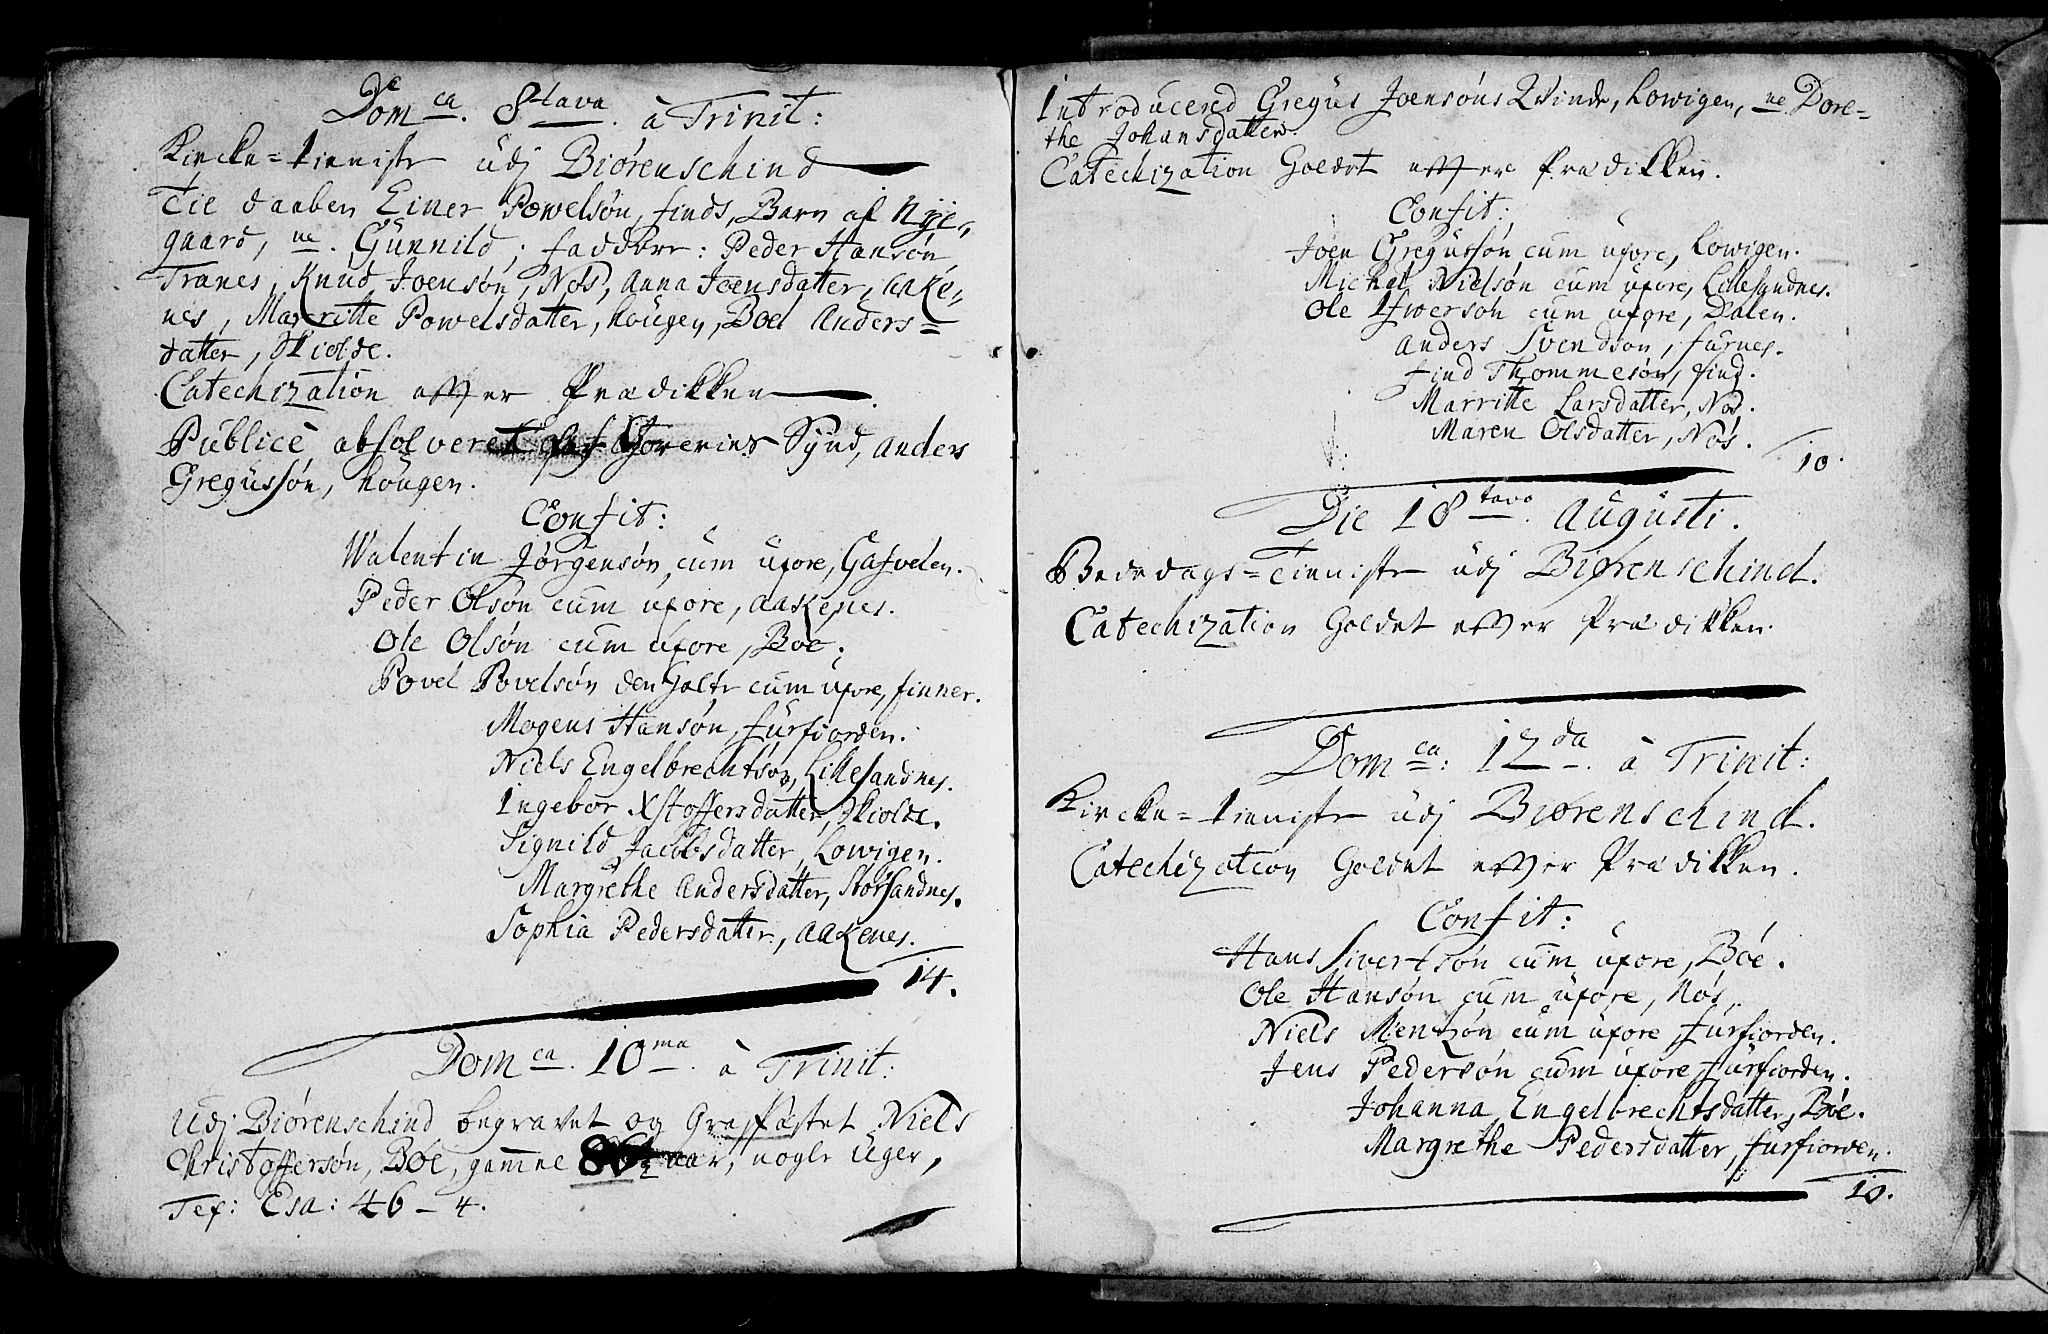 Dom ca. 8 tava. à Trinit:
Kircke=tieniste udj Biørenschind
Til daaben Einer Powelsøn, finds, Barn af Nÿe„
gaard, ne. Gunnild; faddere: Peder Hansøn
Tranes, Knud Joensøn, Nøs, Anna Joensdatter, Aake„
nes, Marritte Powelsdatter, Haugen, Boel Anders=
datter, Skiolde.
Catechization effter Prædikken
Publicè absolveret Synd, Anders
Gregussøn, Haugen.
Confit:
Walentin Jørgensøn cum uxore, Gafvelen.
Peder Olsøn cum uxore, Aakenes.
Ole Olsøn cum uxore, Böe.
Povel Povelsøn den Galte cum uxore, finner.
Mogens Hansøn, furfiorden.
Niels Engelbrechtsøn, Lillesandnes.
Ingebor Xstoffersdatter, Skiolde.
Signild Jacobsdatter, Lowigen.
Margrethe Andersdatter, Storsandnes.
Sophia Pedersdatter, Aakenes.
14.
Dom ca. 10 ma. à Trinit:
Udj Biørenschind begravet og Graffæstet Niels
Christoffersøn, Böe, gammel 86½ aar, nogle Uger,
Tex: Esa: 46-4.
Introducered Gregus Joensøns Qvinde, Lowigen, ne Dore=
the Johansdatter.
Catechization Holdet effter Prædikken.
Confit:
Joen Gregussøn cum uxore, Lowigen.
Michel Nielsøn cum uxore, Lillesandnes.
Ole Ifwersøn cum uxore, Dalen.
Anders Svendsøn, furnes.
find Thommesøn, find.
Marritte Larsdatter, Nøs.
Maren Olsdatter, Nøs.
10.
Die 18 tavo. Augusti.
Bededags=Tieniste udj Biørenschind.
Catechization Holdet effter Prædikken.
Dom ca: 12 da. à Trinit:
Kircke=tieniste udj Biørenschind.
Catechization Holdet effter Prædikken.
Confit:
Hans Sivertsøn cum uxore, Böe.
Ole Hansøn cum uxore, Nøs.
Niels Mentzøn cum uxore, furfiorden.
Jens Pedersøn cum uxore, furfiorden.
Johanna Engelbrechtsdatter, Böe.
Margrethe Pedersdatter, furfiorden.
10.